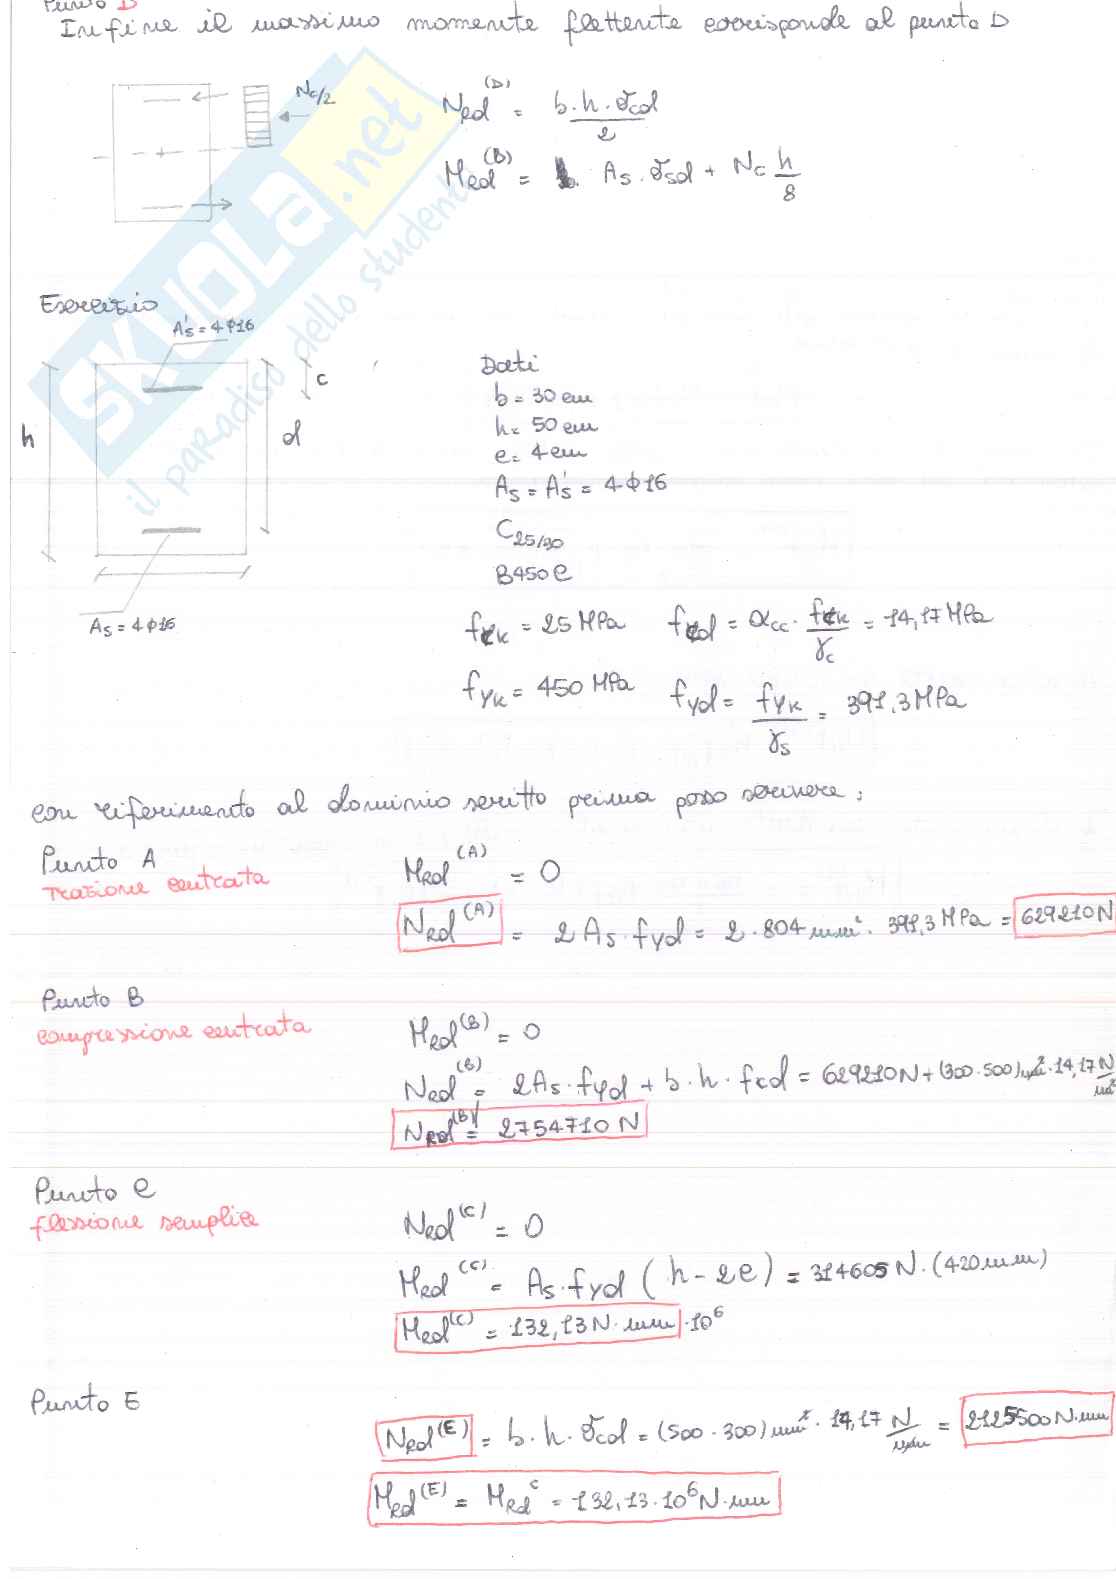 Punto D
Infine il massimo momento flettente corrisponde al punto D
Nc/2
NRd(D) = b·h·σcd / 2
MRd(B) = As·σsd + Nc h/8
Esercizio
A's = 4Φ16
c
h
d
As = 4Φ16
Dati
b = 30 cm
h = 50 cm
c = 4 cm
As = A's = 4Φ16
C25/30
B450C
fck = 25 MPa fcd = αcc · fck/γc = 14,17 MPa
fyk = 450 MPa fyd = fyk/γs = 391,3 MPa
con riferimento al dominio scritto prima posso scrivere:
Punto A
trazione centrata
MRd(A) = 0
NRd(A) = 2 As·fyd = 2·804 mm²·391,3 MPa = 629210 N
Punto B
compressione centrata
MRd(B) = 0
NRd(B) = 2As·fyd + b·h·fcd = 629210 N + (300·500) mm²·14,17 N/mm²
NRd(B) = 2754710 N
Punto C
flessione semplice
NRd(C) = 0
MRd(C) = As·fyd (h - 2c) = 314605 N·(420 mm)
MRd(C) = 132,13 N·mm ·10⁶
Punto E
NRd(E) = b·h·σcd = (500·300) mm²·14,17 N/mm = 2125500 N·mm
MRd(E) = MRd C = 132,13·10⁶ N·mm
SKUOLA.net
il paradiso dello studente